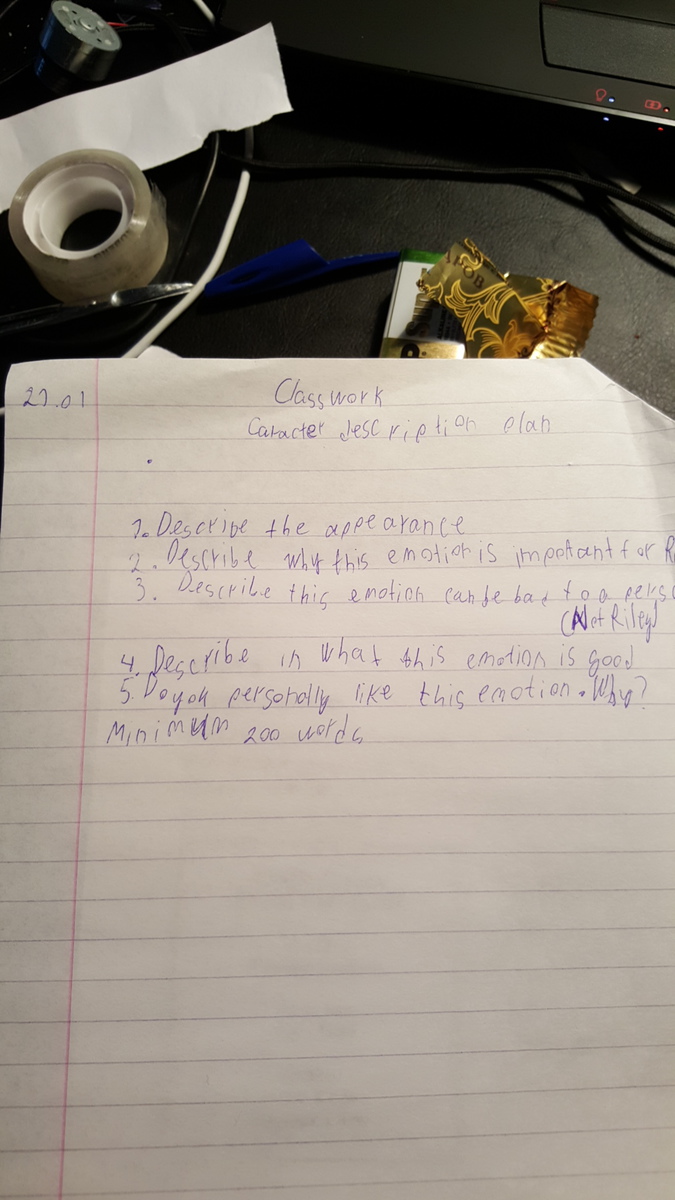 27.01
Classwork
Caracter description plan
1. Describe the appearance
2. Describe why this emotion is impotant for R
3. Describe this emotion can be bad to a perso
(Not Riley)
4. Describe in what this emotion is good
5. Do you personally like this emotion. Why?
Minimum 200 words